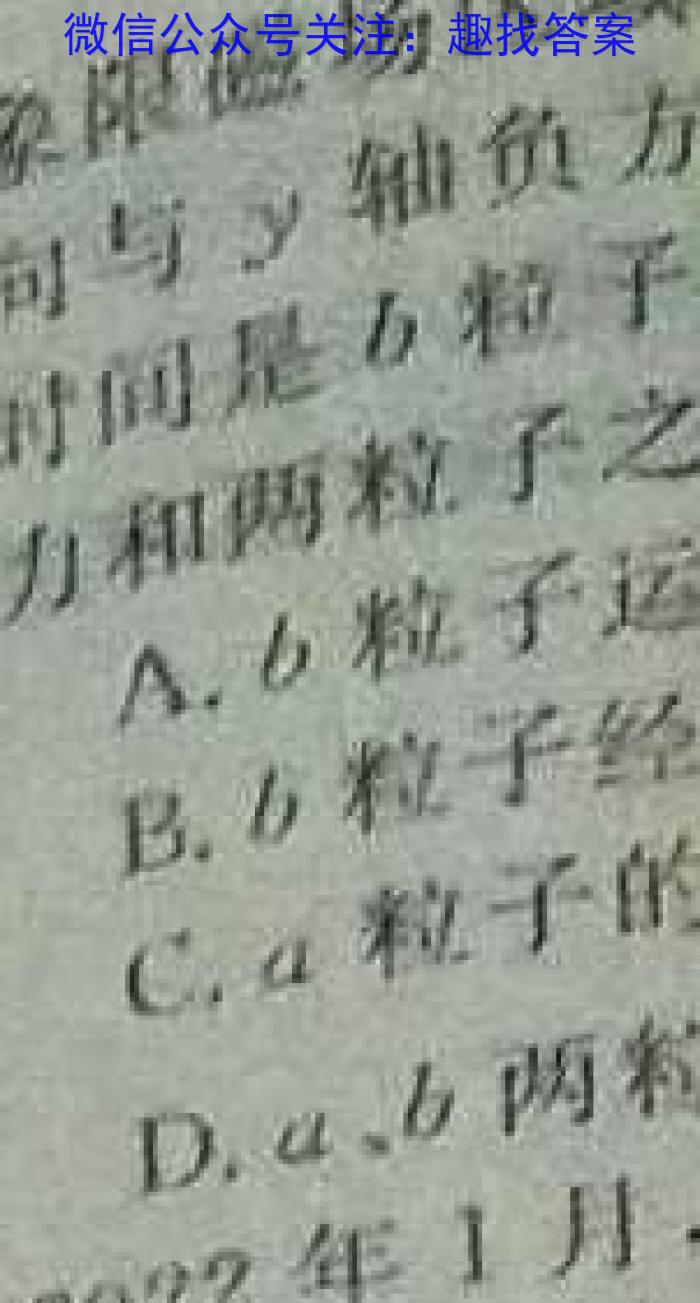 微信公众号关注：趣找答案
限磁场
向与 y 轴负方
时间是 b 粒子
力和两粒子之
A. b 粒子运
B. b 粒子经
C. a 粒子的
D. a、b 两粒
2022 年 1 月